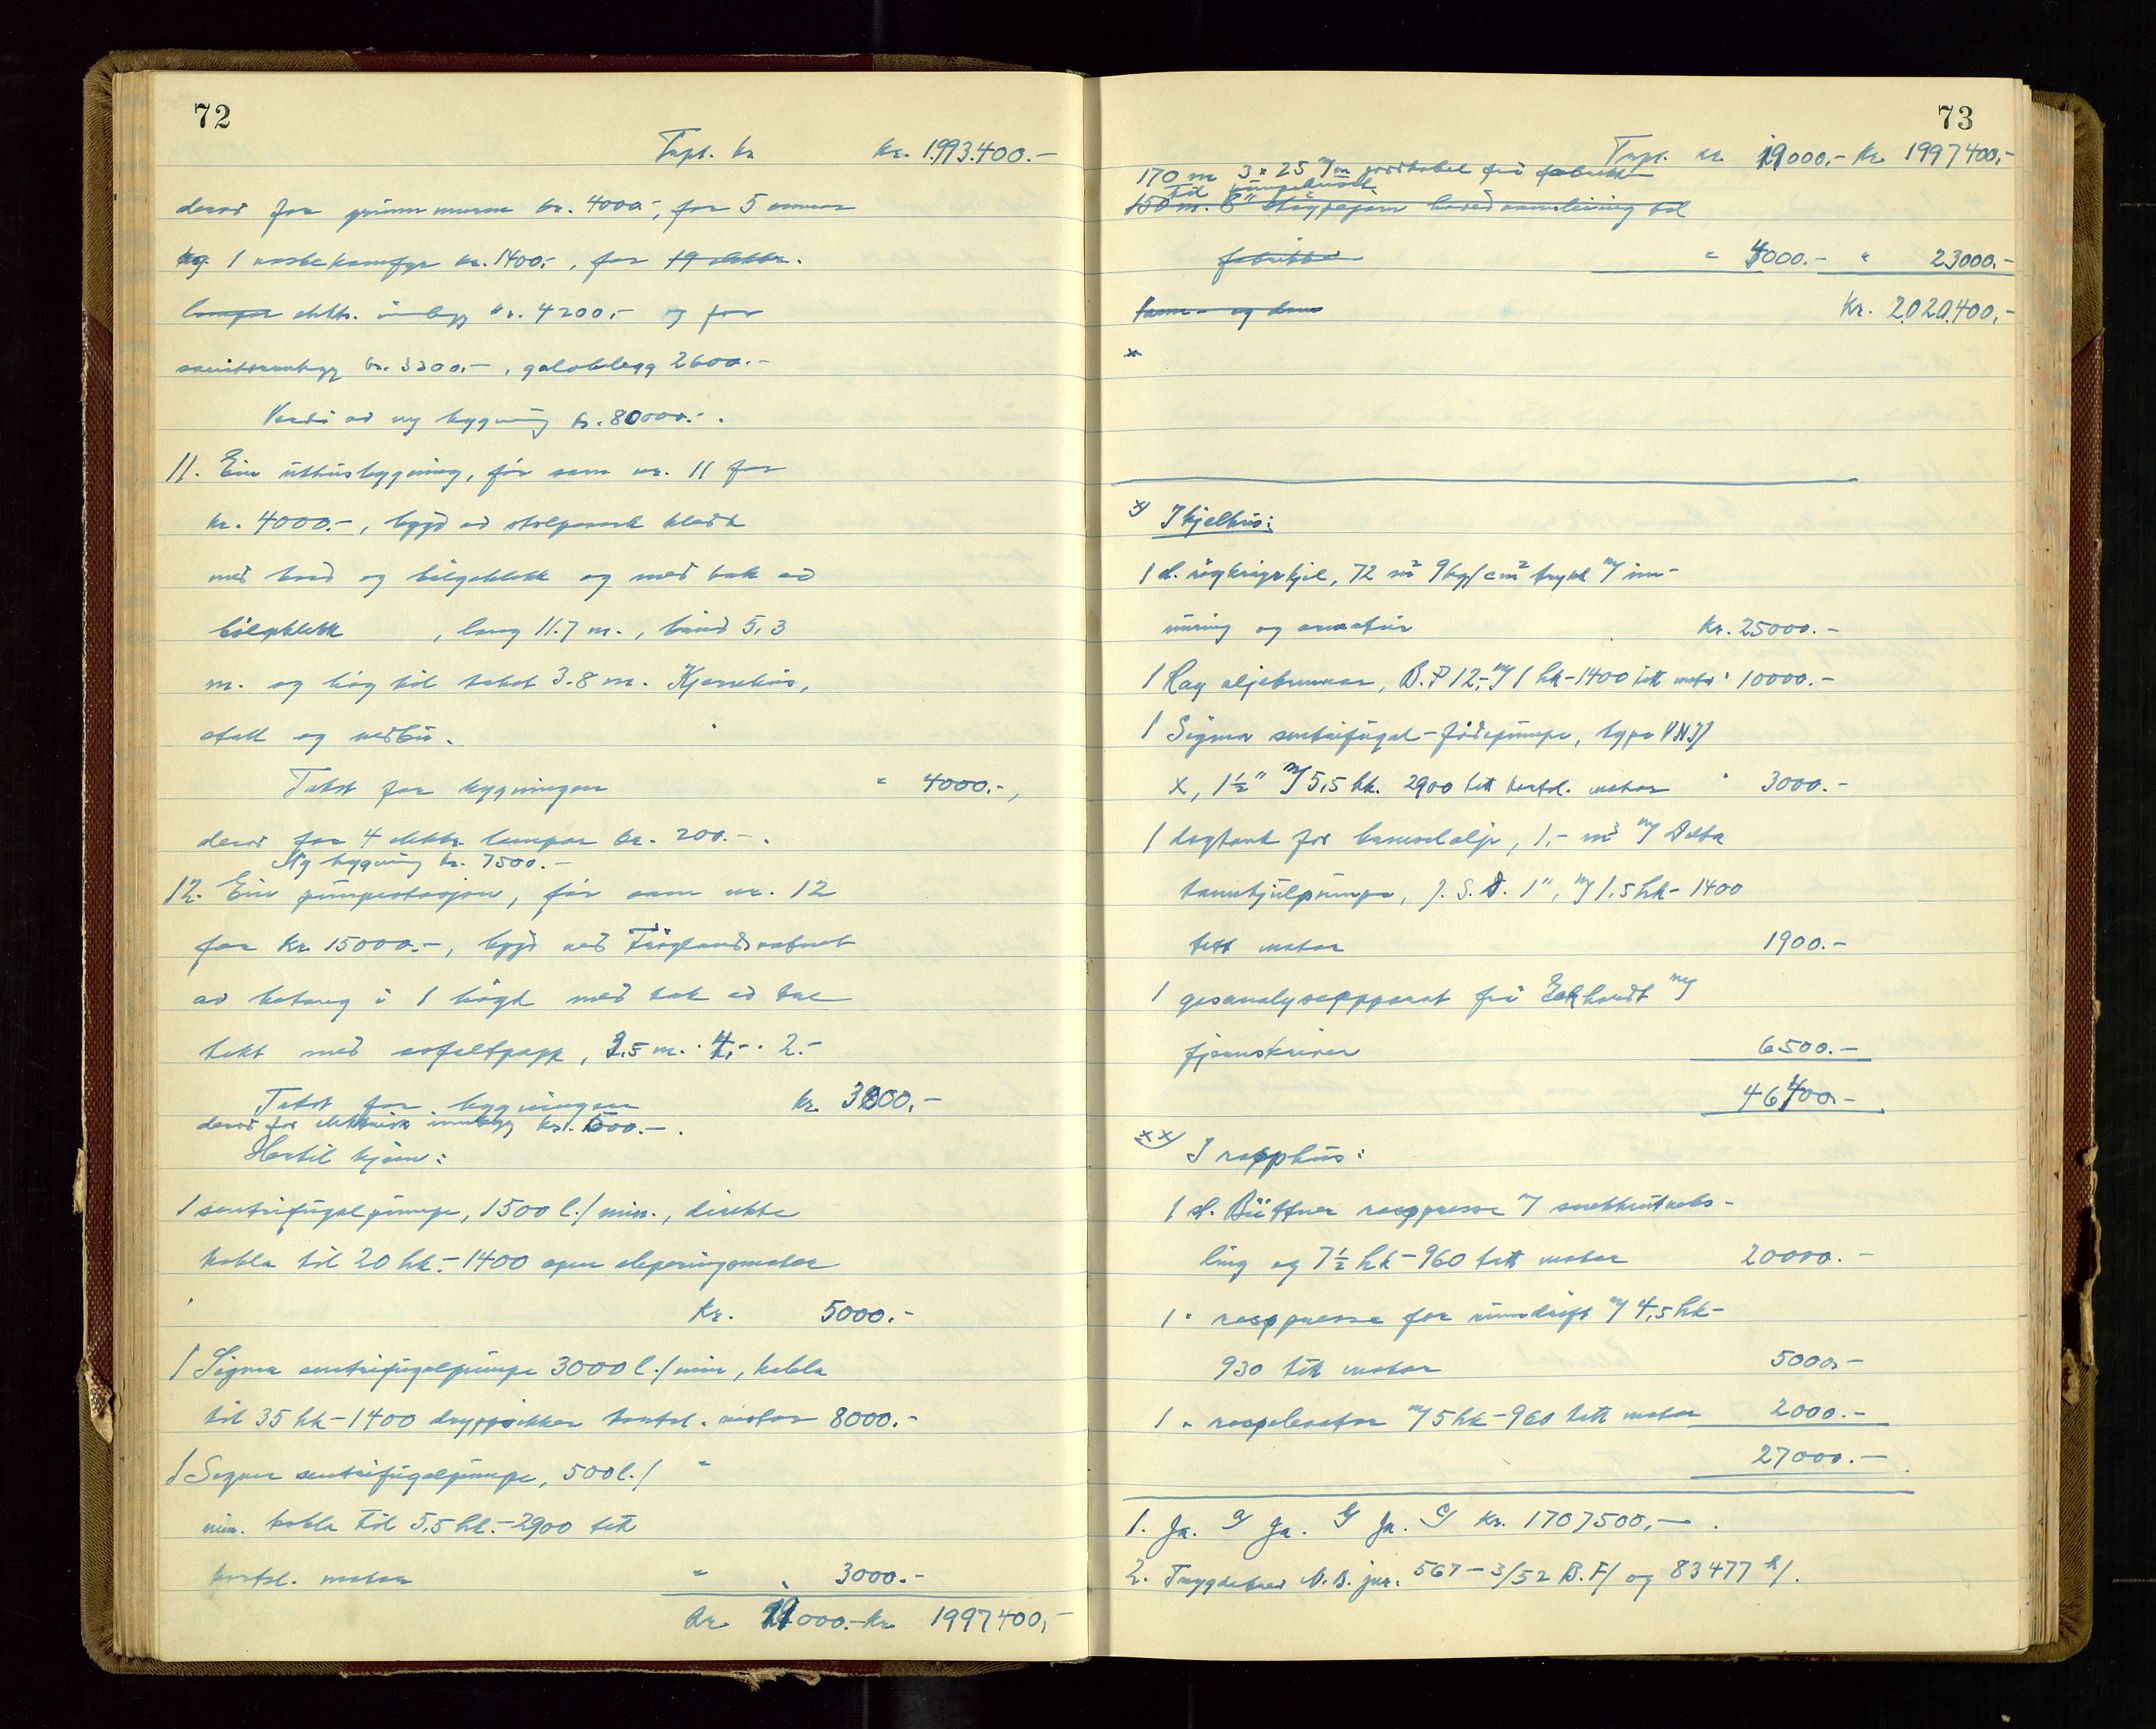 72
Trpt. kr kr. 1.993.400.-
derav for grunnmuren kr. 4000.-, for 5 omnar
og 1 vaskekomfyr kr. 1400.-, for 19 elektr.
lampor elektr. innlegg kr. 4200.- og for
sanitæranlegg kr. 3200.-, golvbelegg 2600.-
Verdi av ny bygning kr. 80000.-.
11. Ein uthusbygning, før som nr. 11 for
kr. 4000.-, bygd av stolpeverk kledt
med bord og bølgeblekk og med tak av
bølgeblekk , lang 11.7 m., breid 5,3
m. og høg til taket 3.8 m. Kjerrehus,
stall og vedbu.
Takst for bygningen " 4000.-,
derav for 4 elektr. lampor kr. 200.-.
Ny bygning kr. 7500.-
12. Ein pumpestasjon, før som nr. 12
for kr 15000.-, bygd ved Frøylandsvatnet
av betong i 1 høgd med tak av tre
tekt med asfaltpapp, 3,5 m. · 4,- · 2.-
Takst for bygningen kr 3800,-
derav for elektrisk innlegg kr. 600.-.
Hertil kjem:
1 sentrifugalpumpe, 1500 l./min., direkte
kobla til 20 hk.-1400 open sleperingsmotor
kr. 5000.-
1 Sigma sentrifugalpumpe 3000 l./min, kobla
til 35 hk-1400 dryppsikker kortsl. motor 8000.-
1 Sigma sentrifugalpumpe, 500 l./ "
min. kobla til 5,5 hk.-2900 tett
kortsl. motor " 3000.-
kr 19000.- kr 1997400,-
73
Trpt. kr. 19000,- kr. 1997400,-
170 m 3 x 25 m/m jordkabel frå fabrikk
til pumpehuset
150 m. 8" støypejern hovedvannleining til
fabrikken " 4000.- " 23000.-
Kr. 2.020.400,-
Vann- og
x
x) I kjelhus:
1 st. røykrøyrkjel, 72 m² 9 kg/cm² trykk m/ inn-
muring og armatur kr. 25000.-
1 Ray oljebrennar, B.P 12,- m/ 1 hk-1400 tett motor " 10000.-
1 Sigma sentrifugal-fødepumpe, type VNJJ
x, 1½" m/5,5 hk. 2900 tett kortsl. motor " 3000.-
1 dagtank for brenselolje, 1,- m³ m/ Delta
tannhjulpumpe, J.S.D. 1", m/ 1,5 hk-1400
tett motor 1900.-
1 gasanalyseapparat frå Eckhardt m/
fjernskriver 6500.-
46400.-
xx) I rasphus:
1 st. Büttner rasppresse m/ snekkeutveks-
ling og 7½ hk-960 tett motor 20000.-
1 " rasppresse for remdrift m/ 4,5 hk-
930 tett motor 5000.-
1 " raspelevator m/5 hk-960 tett motor 2000.-
27000.-
1. Ja. G Ja. G Ja. G kr. 1707500,-.
2. Trygdelaget N.B. jnr. 567-3/52 B.F/ og 83477 h/.